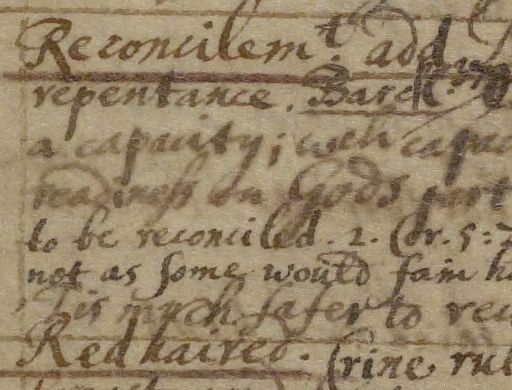 Reconcilemt. add
repentance. Barck.
a capacity; wch capac
readiness on Gods part
to be reconciled. 2. Cor. 5:
not as some would fain h
'Tis much safer to rec
Redhaired. Crine rub